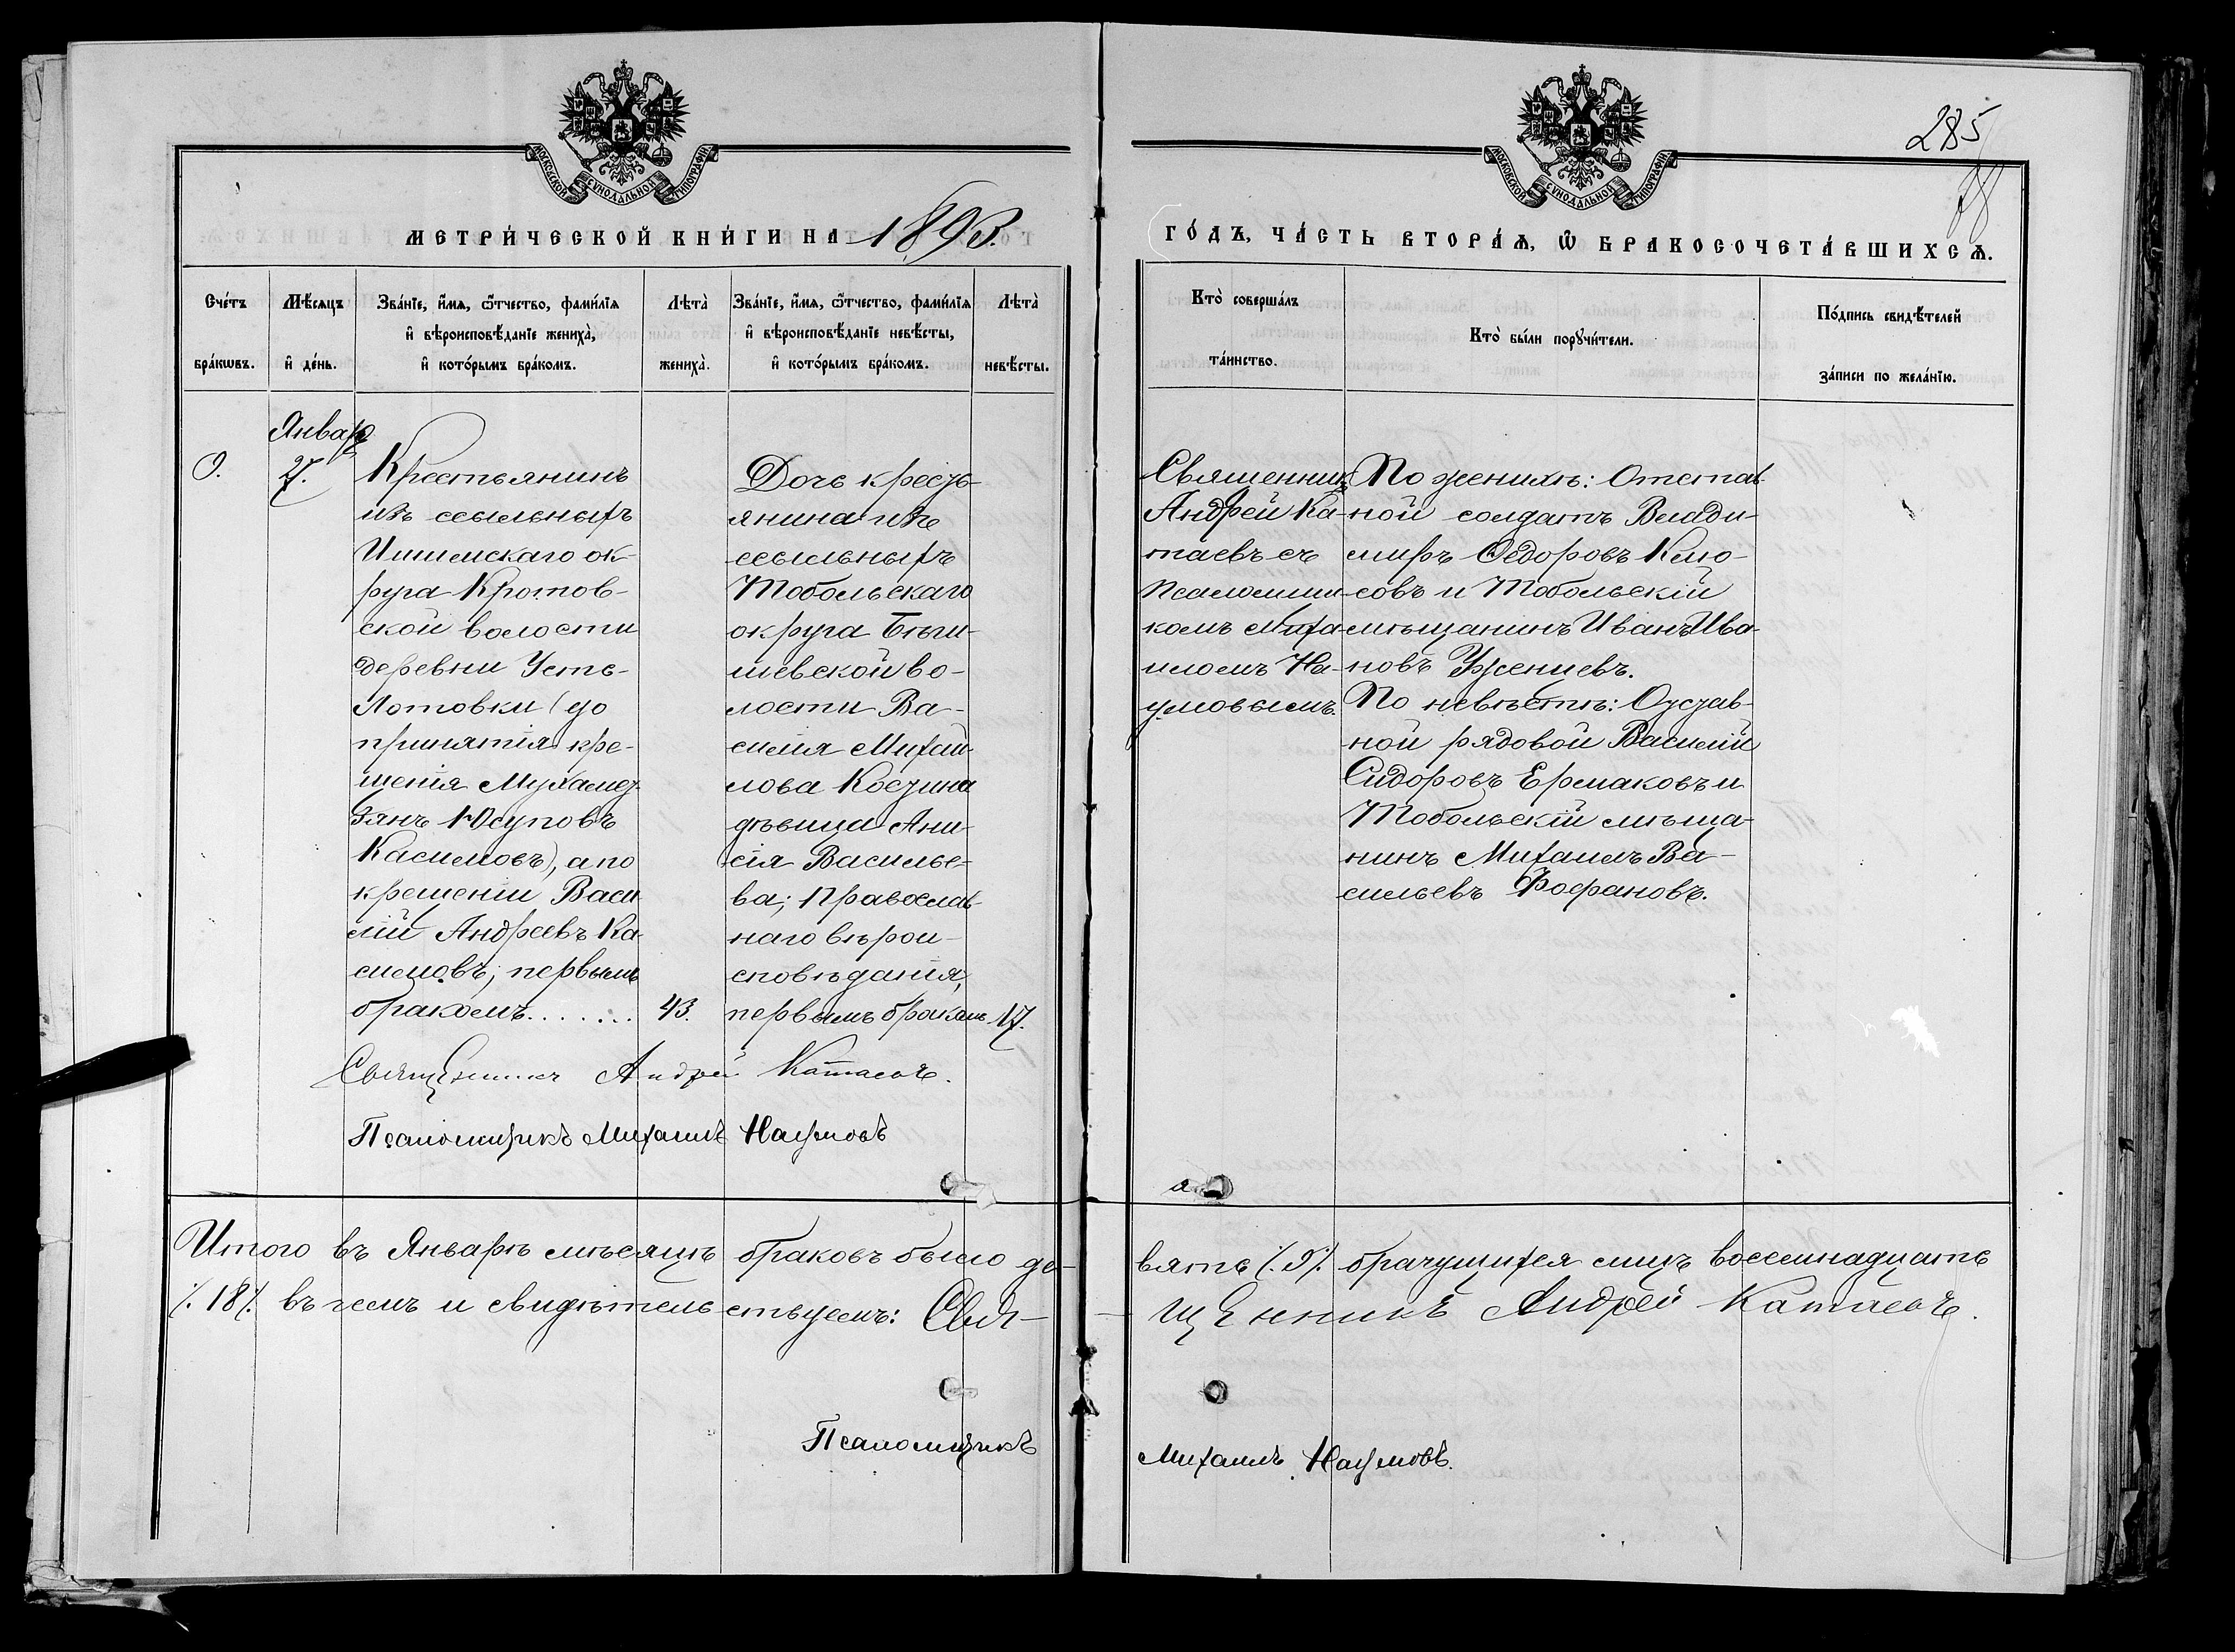 285
МОСКОВСКОЙ СУНОДАЛЬНОЙ ТИПОГРАФІИ
МОСКОВСКОЙ СУНОДАЛЬНОЙ ТИПОГРАФІИ
МЕТРИ́ЧЕСКОЙ КНИ́ГИ НА 1893.
ГО́ДЪ, ЧА́СТЬ ВТОРА́Ѧ, Ѡ҆ БРАКОСОЧЕТА́ВШИХСѦ.
Сче́тъ
бра́кѡвъ.
Мѣ́сяцъ
и҆ де́нь.
Зва́нїе, и҆́мѧ, ѻ҆́тчество, фами́лїѧ
и҆ вѣроисповѣ́данїе жениха̀,
и҆ кото́рымъ бра́комъ.
Лѣта̀
жениха̀.
Зва́нїе, и҆́мѧ, ѻ҆́тчество, фами́лїѧ
и҆ вѣроисповѣ́данїе невѣ́сты,
и҆ кото́рымъ бра́комъ.
Лѣта̀
невѣ́сты.
Кто̀ соверша́лъ
та́инство.
Кто̀ бы́ли порꙋчи́тели.
По́дпись свидѣ́телей
за́писи по жела́нїю.
9.
Январ
27.
Крестьянинъ
изъ ссыльныхъ
Ишимскаго ок-
руга Кротов-
ской волости
деревни Усть-
Лотовки (до
принятія кре-
щенія Мухамед-
зянъ Юсуповъ
Касимовъ), а по
крещеніи Васи
лій Андреевъ Ка-
симовъ; первымъ
бракомъ.......
43.
Дочь кресть-
янина изъ
ссыльныхъ
Тобольскаго
округа Бѣги-
шевской во-
лости Ва-
силія Михай-
лова Костина
дѣвица Ани-
сія Василье-
ва; Православ-
наго вѣрои-
сповѣданія,
первымъ бракомъ
17.
Священникъ
Андрей Ка-
таевъ съ
Псаломщи-
комъ Миха-
иломъ На-
умовымъ.
По женихѣ: Отстав-
ной солдатъ Влади-
миръ Ѳедоровъ Клю-
совъ и Тобольскій
мѣщанинъ Иванъ Ива-
новъ Уженцевъ.
По невѣстѣ: Отстав-
ной рядовой Василій
Сидоровъ Ермаковъ и
Тобольскій мѣща-
нинъ Михаилъ Ва-
сильевъ Фофановъ.
Священникъ Андрей Катаевъ.
Псаломщикъ Михаилъ Наумовъ
Итого въ Январѣ мѣсяцѣ браковъ было де-
вять /.9/. брачущихся лицъ восемнадцать
/.18/. въ чемъ и свидѣтельствуемъ: Свя-
щенникъ Андрей Катаевъ.
Псаломщикъ
Михаилъ Наумовъ.